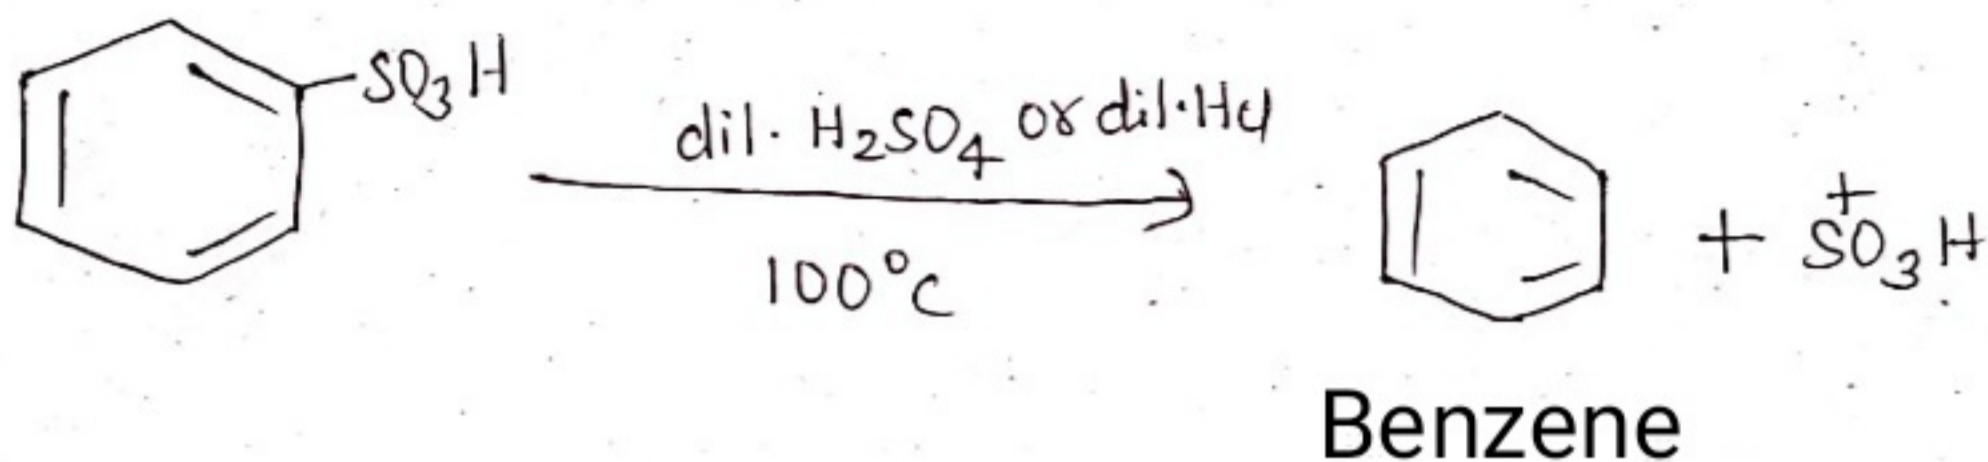 SO₃H
dil. H₂SO₄ or dil. HCl
100°C
+ S⁺O₃H
Benzene